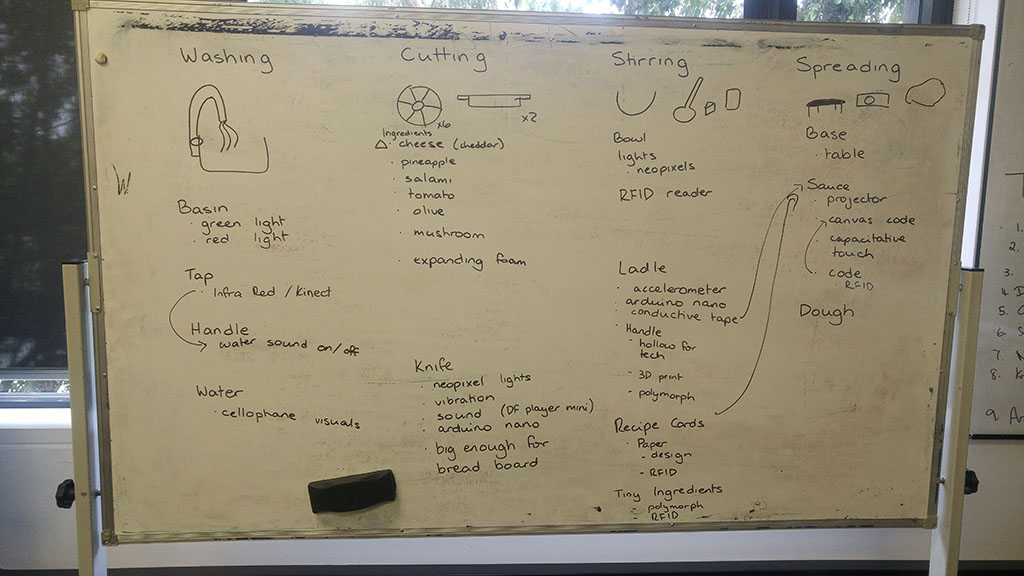 Washing
Basin
· green light
· red light
Tap
· Infra Red / Kinect
Handle
water sound on/off
Water
· cellophane visuals
Cutting
x6
x2
Ingredients
· cheese (cheddar)
· pineapple
· salami
· tomato
· olive
· mushroom
· expanding foam
Knife
· neopixel lights
· vibration
· sound (DF player mini)
· arduino nano
· big enough for
bread board
Stirring
Bowl
lights
· neopixels
RFID reader
Ladle
· accelerometer
· arduino nano
· conductive tape
· Handle
· hollow for
tech
- 3D print
- polymorph
Recipe Cards
· Paper
- design
- RFID
Tiny Ingredients
- polymorph
- RFID
Spreading
Base
· table
Sauce
· projector
· canvas code
· capacitative
touch
· code
· RFID
Dough
W
1.
2.
3.
4.
5.
6.
7.
8.
9.